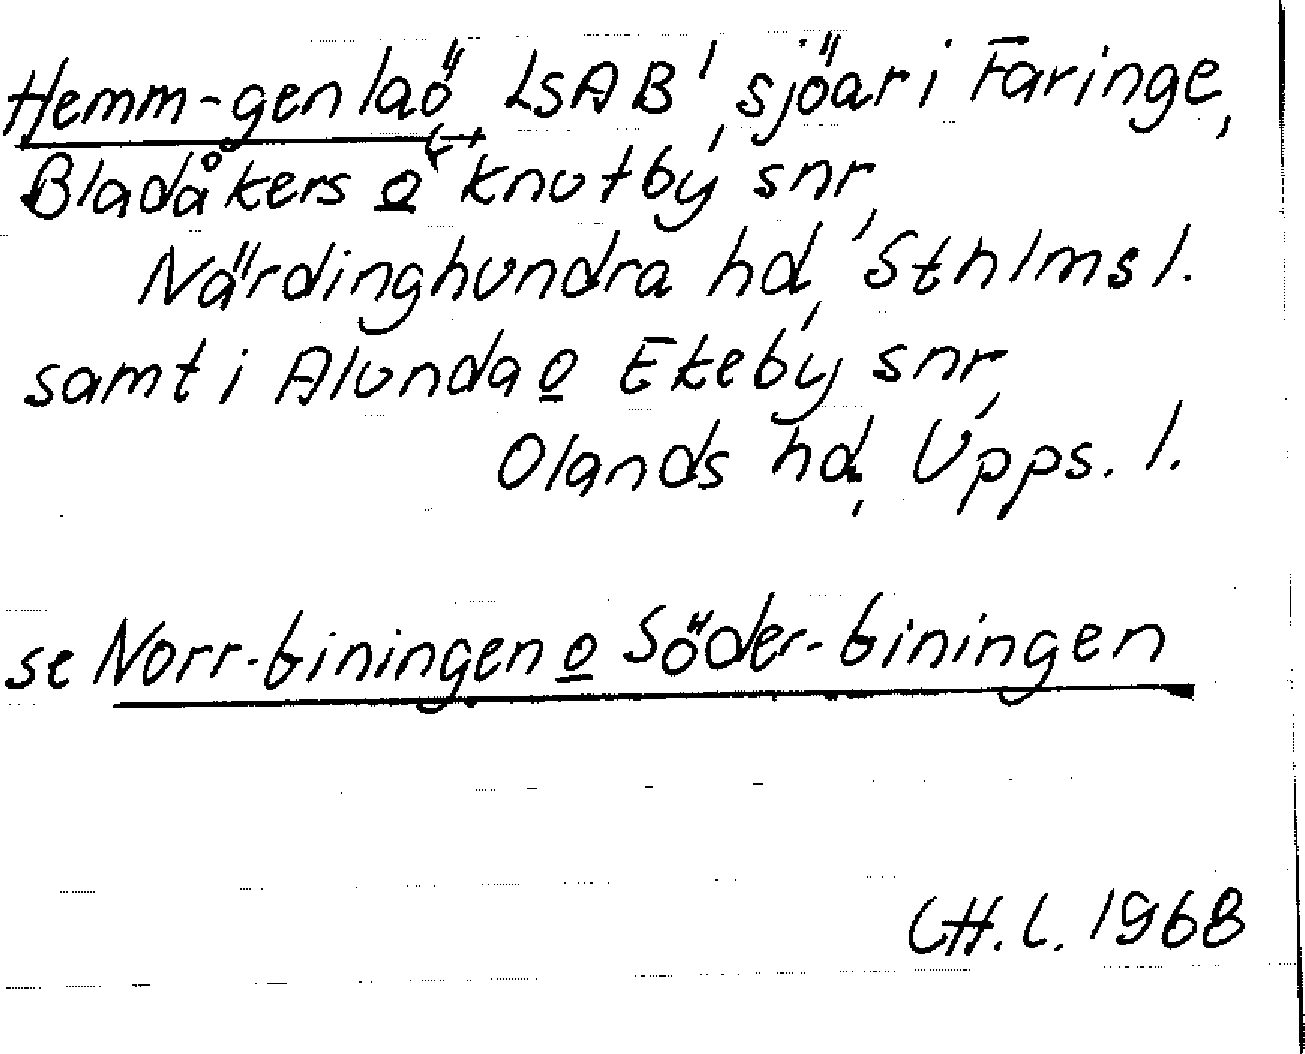 Hemm-gen laö LSAB' sjöar i Faringe,
Bladåkers o Knutby snr,
Närdinghundra hd, Sthlms l.
samt i Alunda o Ekeby snr,
Olands hd, Upps. l.
se Norr-giningen o Söder-giningen
CH.L. 1968